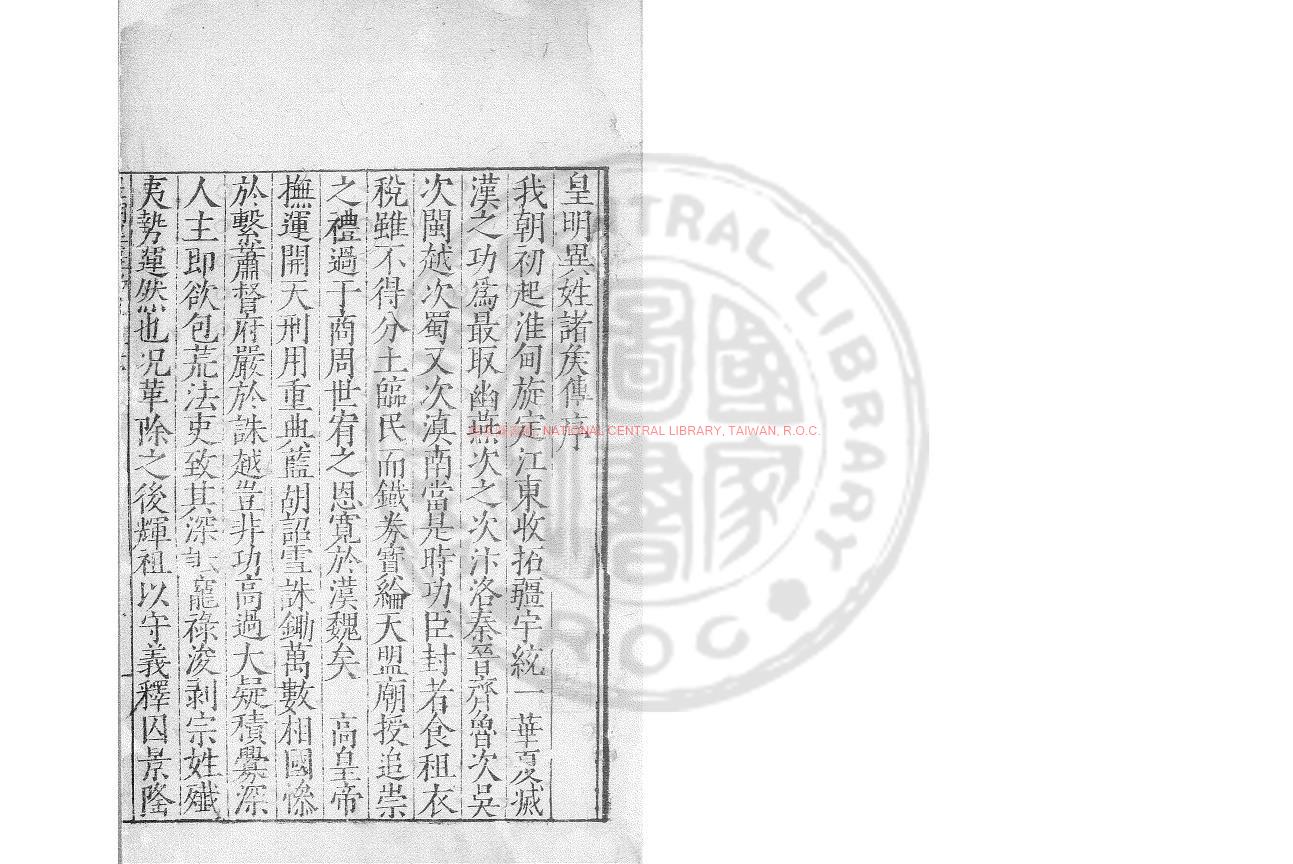 皇明異姓諸矦傳序
我朝初起淮甸旋定江東收拓疆宇統一華夏滅
漢之功爲最取幽燕次之次汴洛秦晉齊魯次吳
次閩越次蜀又次滇南當是時功臣封者食租衣
稅雖不得分土臨民而鐵券寳綸天盟廟授追崇
之禮過于商周世宥之恩寛於漢魏矣　高皇帝
撫運開天刑用重典藍胡詔雪誅鋤萬數相國慘
於繫蕭督府嚴於誅越豈非功高過大疑積釁深
人主即欲包荒法吏致其深寵祿浚剥宗姓殱
夷勢運然也况革除之後輝祖以守義釋囚景隆
NATIONAL CENTRAL LIBRARY, TAIWAN, R.O.C.
CENTRAL LIBRARY
R O C